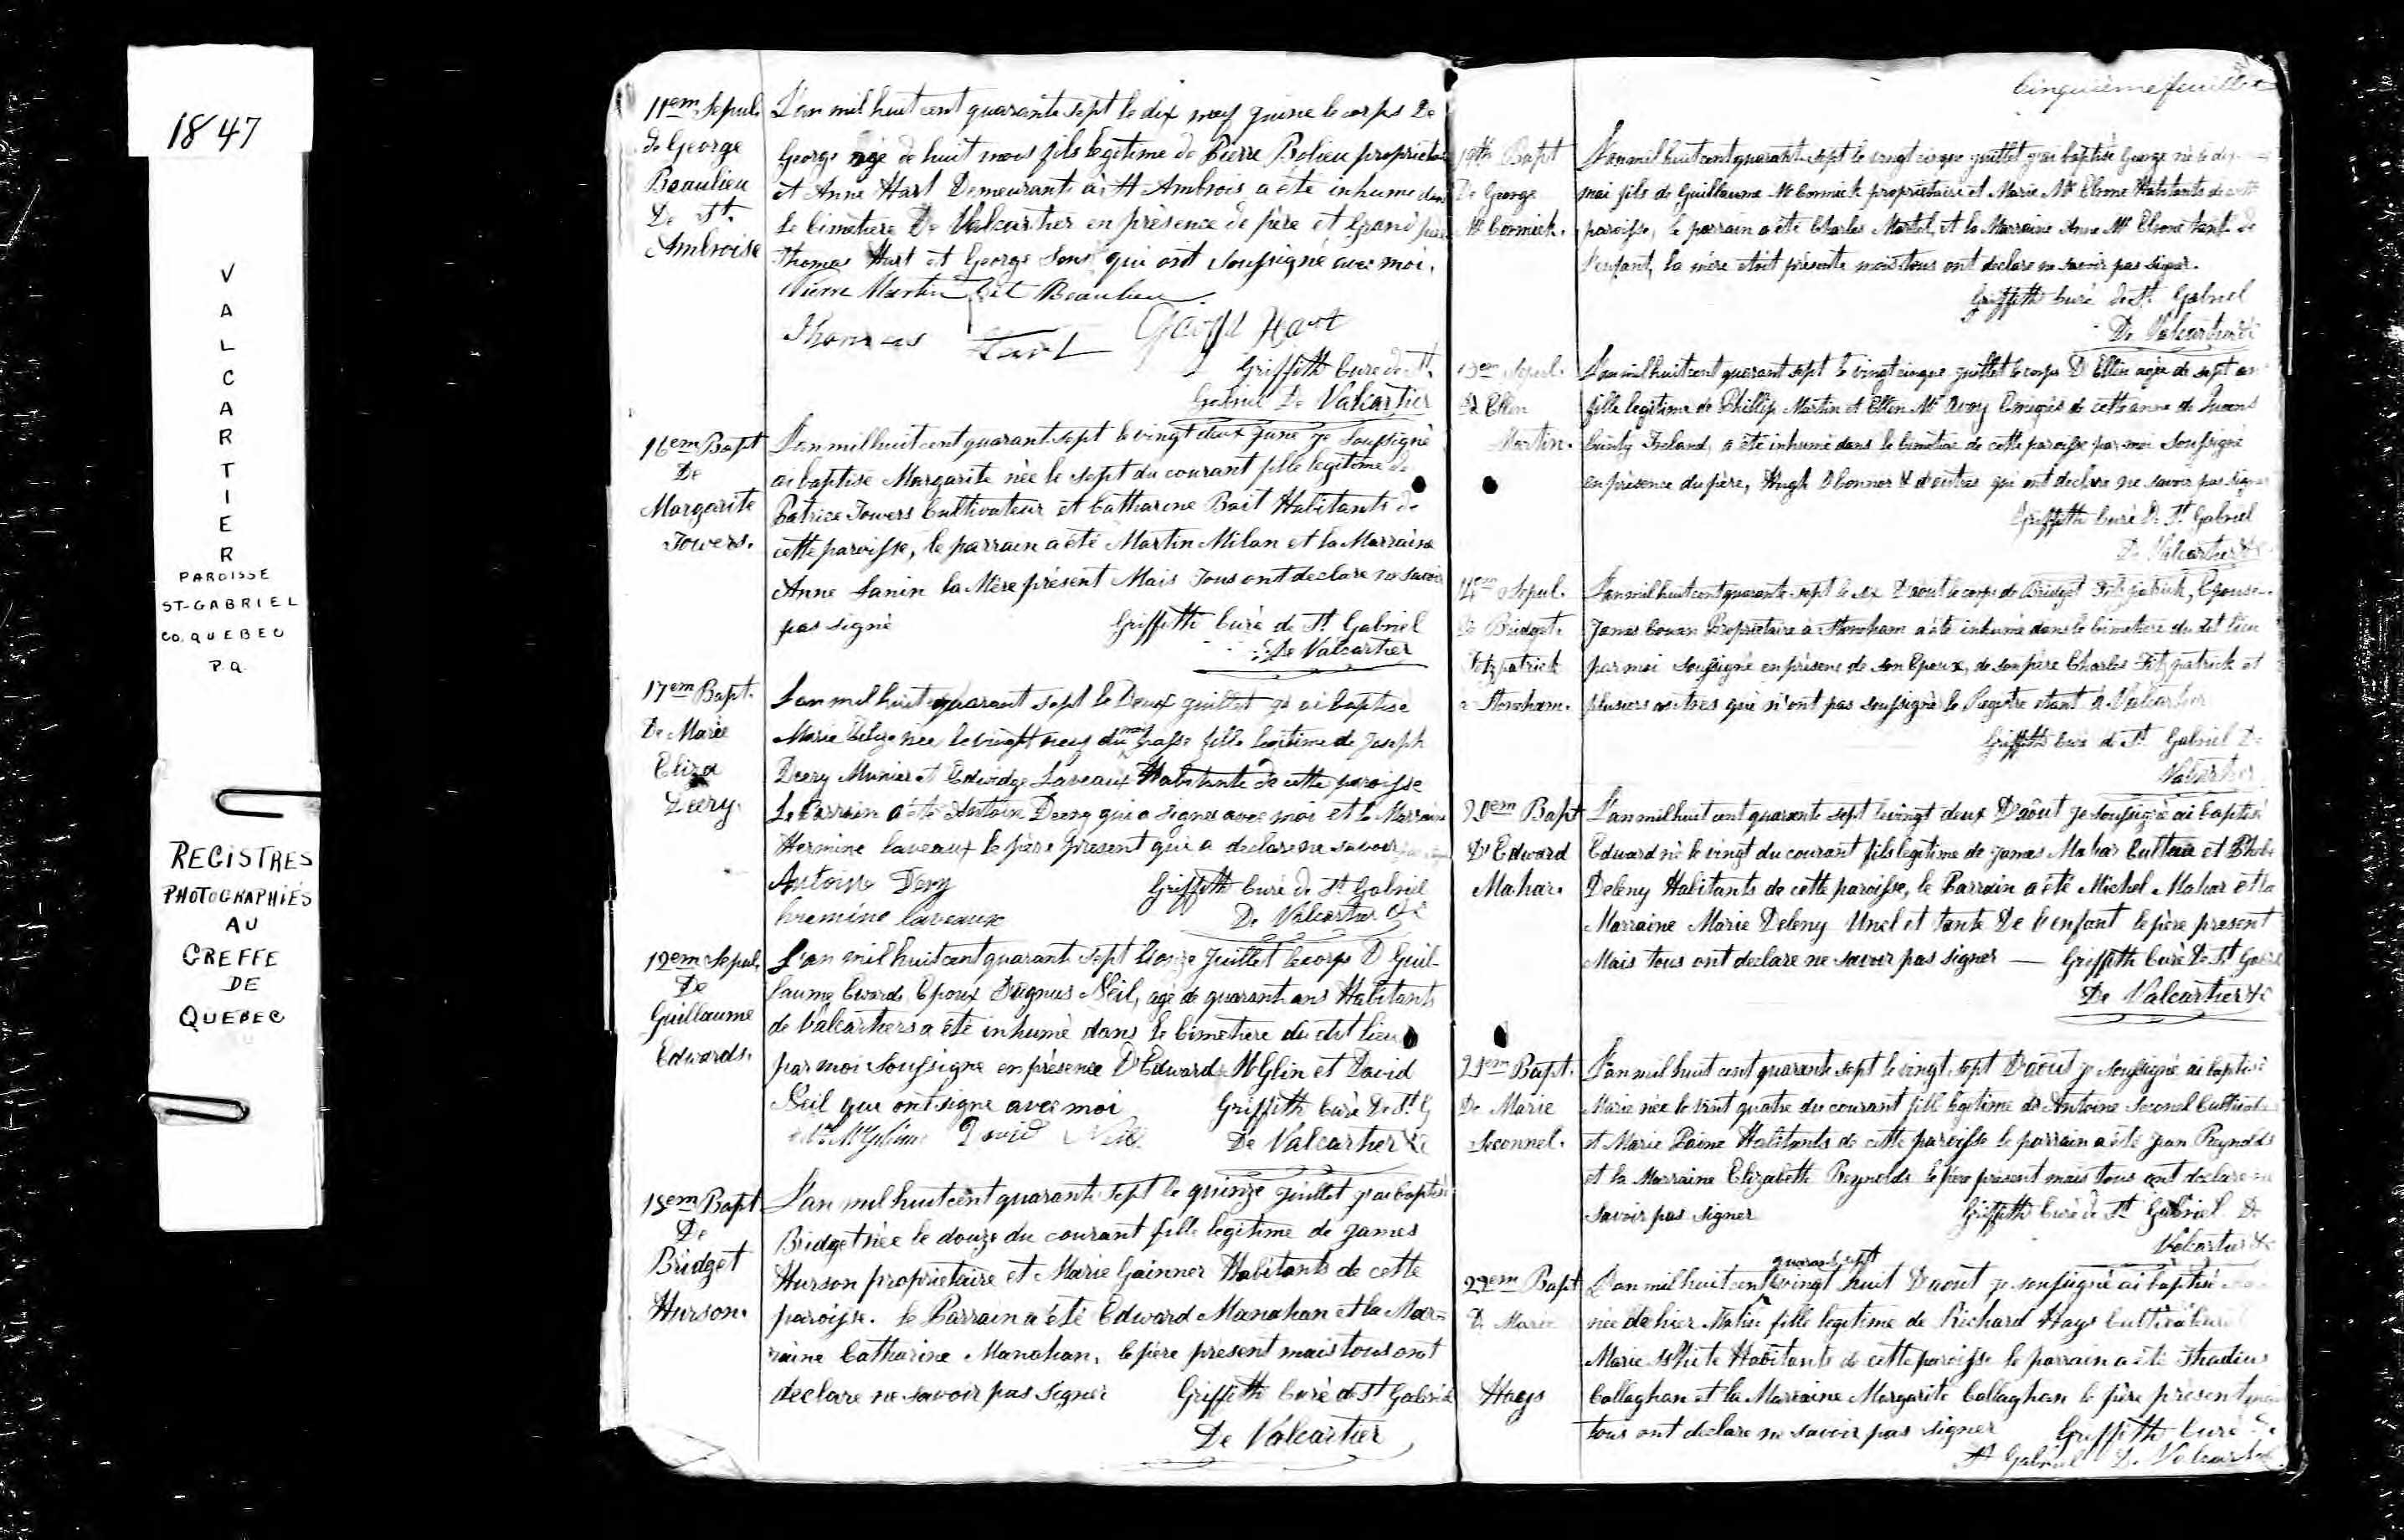 1847
V
A
L
C
A
R
T
I
E
R
PAROISSE
ST-GABRIEL
CO. QUEBEC
P.Q.
REGISTRES
PHOTOGRAPHIÉS
AU
GREFFE
DE
QUEBEC
11em Sepul.
de George
Beaulieu
De St.
Ambroise
L'an mil huit cent quarante sept le dix neuf juine le corps De
George agé de huit mois fils legitime de Pierre Bolieu proprietaire
et Anne Hart Demeurant à St Ambrois a été inhumé dans
le Cimetiere De Valcartier en présence de père et Grand père
Thomas Hart et George Hart qui ont soussigné avec moi.
Pierre Martin dit Beaulieu
Thomas Hart George Hart
Griffith Curé de St.
Gabriel De Valcartier
16em Bapt
De
Margarite
Towers.
L'an mil huit cent quarant sept le vingt deux June je soussigné
ai baptisé Margarite née le sept du courant fille legitime de
Patrice Towers Cultivateur et Catharine Bait Habitants de
cette paroisse, le parrain a été Martin Milan et la Marraine
Anne Lanin la Mère présent Mais Tous ont declare ne savoir
pas signé Griffith Curé de St. Gabriel
De Valcartier
17em Bapt.
De Marie
Eliza
Deery.
L'an mil huit quarant sept le Deux juillet je ai baptisé
Marie Eliza née le vingt neuf du mois passé fille legitime de Joseph
Deery Munier et Edwidge Laveaux Habitants de cette paroisse
Le Parrain a été Antoine Deery qui a signé avec moi et la Marraine
Hermine Laveaux le père present qui a declare ne savoir
Antoine Dery Griffith Curé de St. Gabriel
hremine laveaux De Valcartier &c
12em Sepul.
De
Guillaume
Edwards.
L'an mil huit cent quarant sept le onze Juillet le corps D Guil-
laume Ewards Epoux D'agnus Neil, agé de quarant ans Habitants
de Valcartiers a été inhumé dans le Cimetiere du dit lieu
par moi soussigne en présence D'Edward McGlin et David
Neil qui ont signé avec moi Griffith Curé De St. G
David Neil De Valcartier &c
18em Bapt.
De
Bridget
Hurson.
L'an mil huit cent quarante sept le quinze juillet j'ai baptisé
Bridget née le douze du courant fille legitime de James
Hurson proprietaire et Marie Gainner Habitants de cette
paroisse. le Parrain a été Edward Manahan et la Mar=
raine Catharine Manahan, le père présent mais tous ont
declare ne savoir pas signer Griffith Curé de St Gabriel
De Valcartier
Cinquième feuillet
19th Bapt
De George
McCormick.
L'an mil huit cent quarant sept le vingt cinque juillet j'ai baptisé George né le
mai fils de Guillaume McCormick proprietaire et Marie Mc Elrone Habitants de cette
paroisse, le parrain a été Charles Martel, et la Marraine Anne Mc Elrone tante de
l'enfant, la mère étoit présente mais tous ont declare ne savoir pas signer.
Griffith Curé de St. Gabriel
De Valcartier &c
13em Sepul.
D Ellen
Martin.
L'an mil huit cent quarant sept le vingt cinque juillet le corps D'Ellen agée de sept an
fille legitime de Phillip Martin et Ellen McAvoy Emigrés de cette anne de Queens
County Ireland, a été inhumé dans le Cimetiere de cette paroisse par moi soussigné
en présence du père, Hugh OConner & d'autres qui ont declare ne savoir pas signer
Griffith Curé De St. Gabriel
De Valcartier &c
14em Sepul.
De Bridget
Fitzpatrick
a Stoneham.
L'an mil huit cent quarante sept le six D'aout le corps de Bridget Fitzpatrick, Epouse
James Cowan Proprietaire à Stoneham a été inhumé dans le Cimetiere du dit lieu
par moi soussigné en présence de son Epoux, de son père Charles Fitzpatrick et
plusiers autres qui n'ont pas soussigné le Registre etant à Valcartier
Griffith Curé de St. Gabriel De
Valcartier
20em Bapt
D'Edward
Mahar.
L'an mil huit cent quarante sept le vingt deux D'aôut je soussigné ai baptisé
Edward né le vingt du courant fils legitime de James Mahar Cultteur et Phebe
Deleny Habitants de cette paroisse, le Parrain a été Michel Mahar et la
Marraine Marie Deleny Uncl et tante De l'enfant le père present
Mais tous ont declare ne savoir pas signer — Griffith Curé De St. Gabriel
De Valcartier &c
21em Bapt.
De Marie
Seconnel.
L'an mil huit cent quarante sept le vingt sept D'aout je soussigné ai baptisé
Marie née le vint quatre du courant fille legitime de Antoine Seconel Cultivate
et Marie Paine Habitants de cette paroisse le parrain a été Jean Reynolds
et la Marraine Elizabeth Reynolds le père présent mais tous ont declare ne
savoir pas signer Griffith Curé de St. Gabriel De
Valcartier &c
22em Bapt
De Marie
Hays
quarante sept
L'an mil huit cent le vingt huit D'aout je soussigné ai baptisé
née de hier Matin fille legitime de Richard Hays Cultivateur
Marie White Habitants de cette paroisse le parrain a été Thadius
Callaghan et la Marraine Margarite Callaghan le père présent mais
tous ont declare ne savoir pas signer Griffith Curé De
St Gabriel De Valcartier